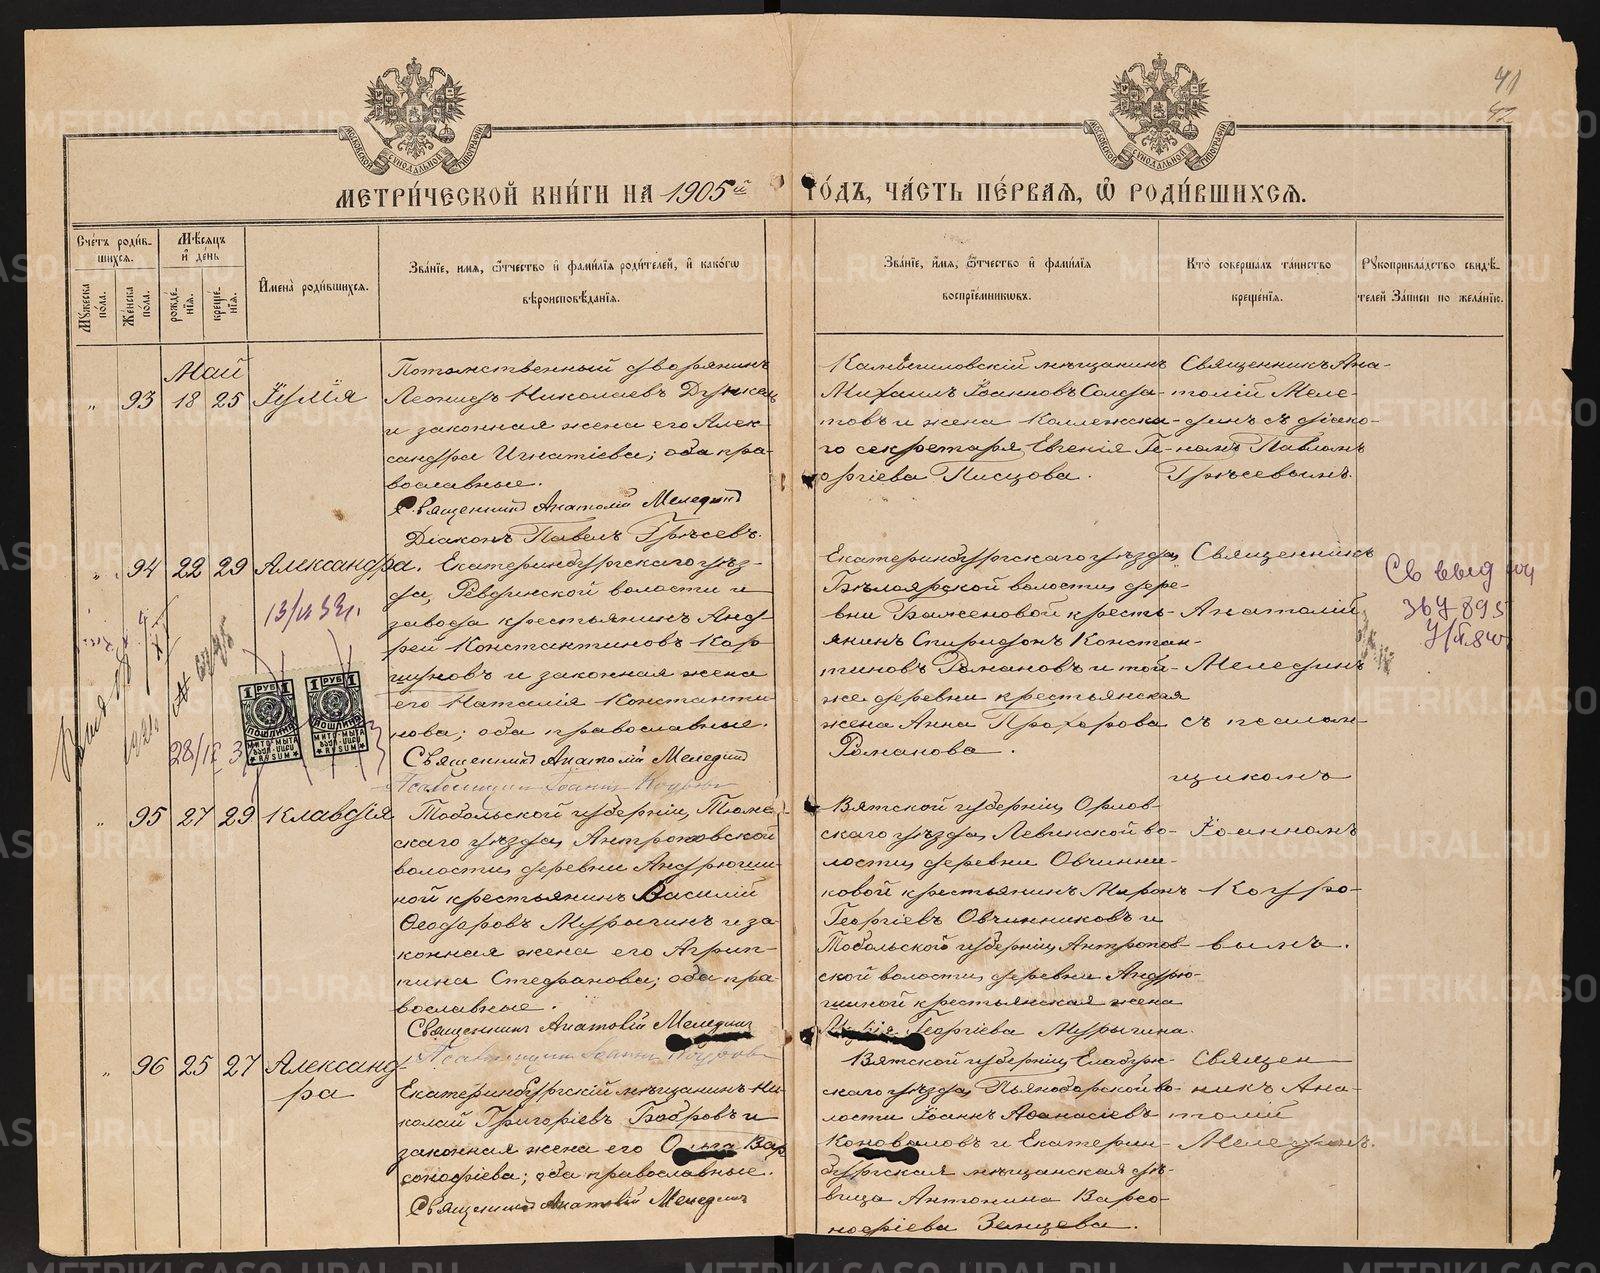 41
42
МОСКОВСКОЙ СѴНОДАЛЬНОЙ ТИПОГРАФІИ
МОСКОВСКОЙ СѴНОДАЛЬНОЙ ТИПОГРАФІИ
МЕТРИ́ЧЕСКОЙ КНИ́ГИ НА 1905й ГО́ДЪ, ЧА́СТЬ ПЕ́РВАЯ, Ѡ҆ РОДИ́ВШИХСЯ.
Сче́тъ роди́в-
шихся.
Мꙋ́жеска пола.
Же́нска по́ла.
Мѣ́сяцъ
и҆ де́нь
рожде́-
нїя.
креще́-
нїя.
И҆мена̀ роди́вшихся.
Зва́нїе, имя, ѻ҆́тчество и҆ фами́лїя роди́телей, и҆ како́гѡ
вѣроисповѣ́данїя.
Зва́нїе, и҆́мя, ѻ҆́тчество и҆ фами́лїя
воспрїе́мникѡвъ.
Кто̀ соверша́лъ та́инство
креще́нїя.
Рꙋкоприкла́дство свидѣ́-
телей За́писи по жела́нїю.
Май
" 93 18 25 Їулія
Потомственный дворянинъ
Леонидъ Николаевъ Дункель
и законная жена его Алек-
сандра Игнатіева; оба пра-
вославные.
Священникъ Анатолій Меледин
Діаконъ Павелъ Грѣсевъ.
Камышловскій мѣщанинъ
Михаилъ Іоанновъ Солда-
товъ и жена Коллежска-
го секретаря Евгенія Ге-
оргіева Писцова.
Священникъ Ана-
толій Меле-
динъ съ діако-
номъ Павломъ
Грѣсевымъ.
" 94 22 29 Александра.
Екатеринбургскаго уѣз-
да, Ревдинской волости и
завода крестьянинъ Анд-
рей Константиновъ Кор
шуновъ и законная жена
его Наталія Константи
нова; оба православные.
Священникъ Анатолій Меледин
Псаломщикъ Іоаннъ
Екатеринбургскаго уѣзда,
Бѣлоярской волости, дере-
вни Баженовой кресть-
янинъ Спиридонъ Констан-
тиновъ Романовъ и той-
же деревни крестьянская
жена Анна Прохорова
Романова.
Священникъ
Анатолій
Мелединъ
съ псалом-
щикомъ
Іоанномъ
Кодро-
вымъ.
13/II 39г.
28/IX 3
1 РУБ 1 РУБ
ПОШЛИНА ПОШЛИНА
МИТО-МЫТА МИТО-МЫТА
RUSUM RUSUM
Св выд
367895
" 95 27 29 Клавдія
Тобольской губерніи, Тюмен-
скаго уѣзда, Антроповской
волости, деревни Андрюши-
ной крестьянинъ Василій
Ѳеодоровъ Мурычинъ и за
конная жена его Агрип-
пина Стефанова; оба пра
вославные.
Священникъ Анатолій Меледин
Псаломщикъ Іоаннъ
Вятской губерніи, Орлов-
скаго уѣзда, Левинской во-
лости, деревни Овчинни-
ковой крестьянинъ Миронъ
Георгіевъ Овчинниковъ и
Тобольской губерніи, Антропов-
ской волости, деревни Андрю-
шиной крестьянская жена
Георгіева Мурычина.
" 96 25 27 Александ-
ра
Екатеринбургскій мѣщанинъ Ни-
колай Григоріевъ Бобровъ и
законная жена его Ольга Вар
сонофіева; оба православные.
Священникъ Анатолій Меледин
Вятской губерніи, Елабуж-
скаго уѣзда, Пьяноборской во-
лости Іоаннъ Аѳанасіевъ
Коноваловъ и Екатерин-
бургская мѣщанская дѣ-
вица Антонина Варсо-
нофіева Заицева.
Священ
никъ Ана-
толій
Мелединъ.
METRIKI.GASO-URAL.RU